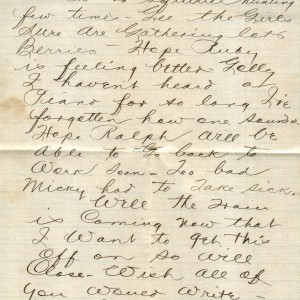 squirrel hunting
few times - Gee the Girls
Sure are Gathering lots
Berries - Hope Ruby
is feeling better Golly
I havent heard a
Piano for so long I've
forgotten how one sounds
Hope Ralph will be
Able to go back to
Work Soon - Too bad
Micky had to Take sick.
Well the Train
is Coming now that
I Want to get this
Off on so will
Close - Wish all of
You Would Write -